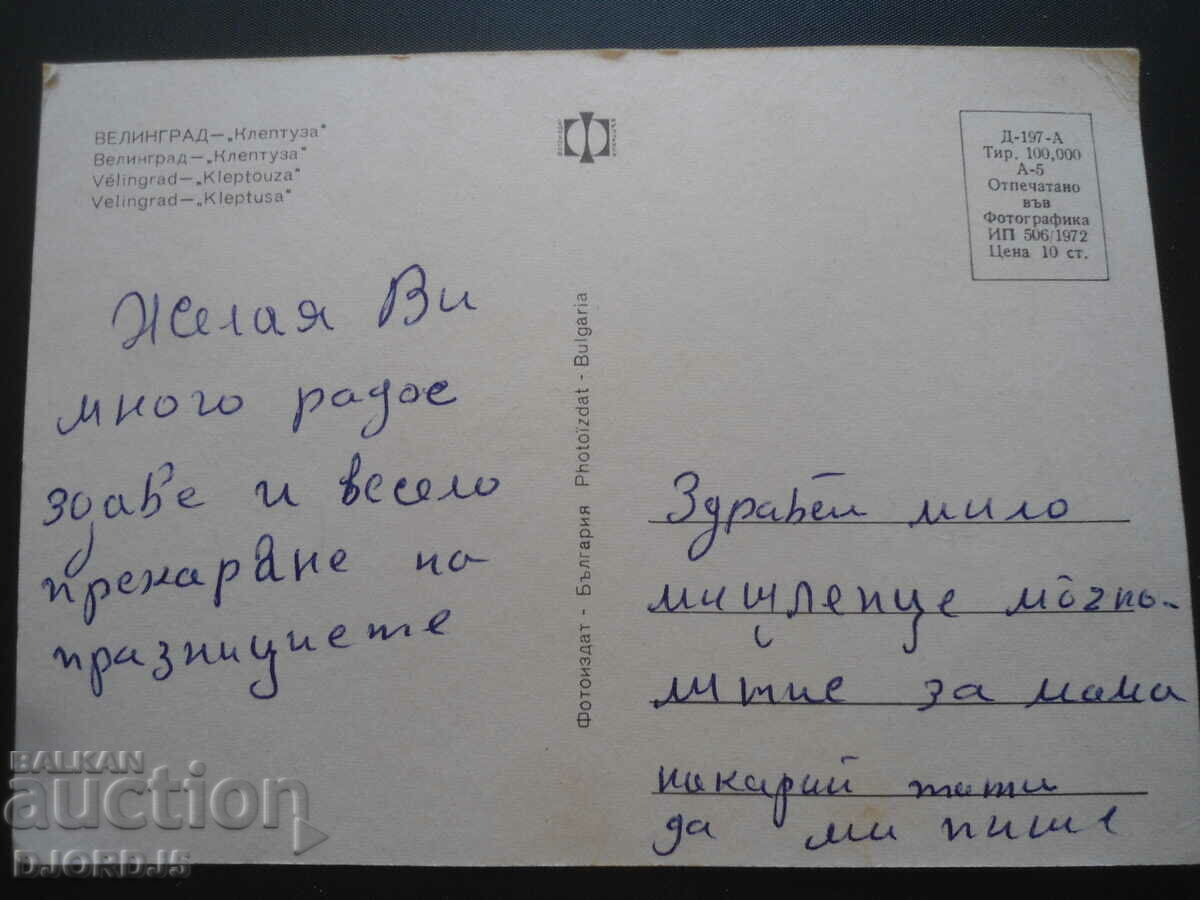 ВЕЛИНГРАД—„Клептуза"
Велинград—„Клептуза"
Vélingrad—„Kleptouza"
Velingrad—„Kleptusa"
Д-197-А
Тир. 100,000
А-5
Отпечатано
във
Фотографика
ИП 506/1972
Цена 10 ст.
Желая Ви
много радос
здраве и весело
прекаране на
празниците
Фотоиздат - България Photoïzdat - Bulgaria
Здравей мило
за мама
накарий тати
да ми пише
BALKAN
auction
DJORDJ5